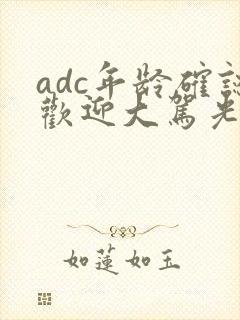 adc年龄確認
歡迎大駕光
如蓮如玉